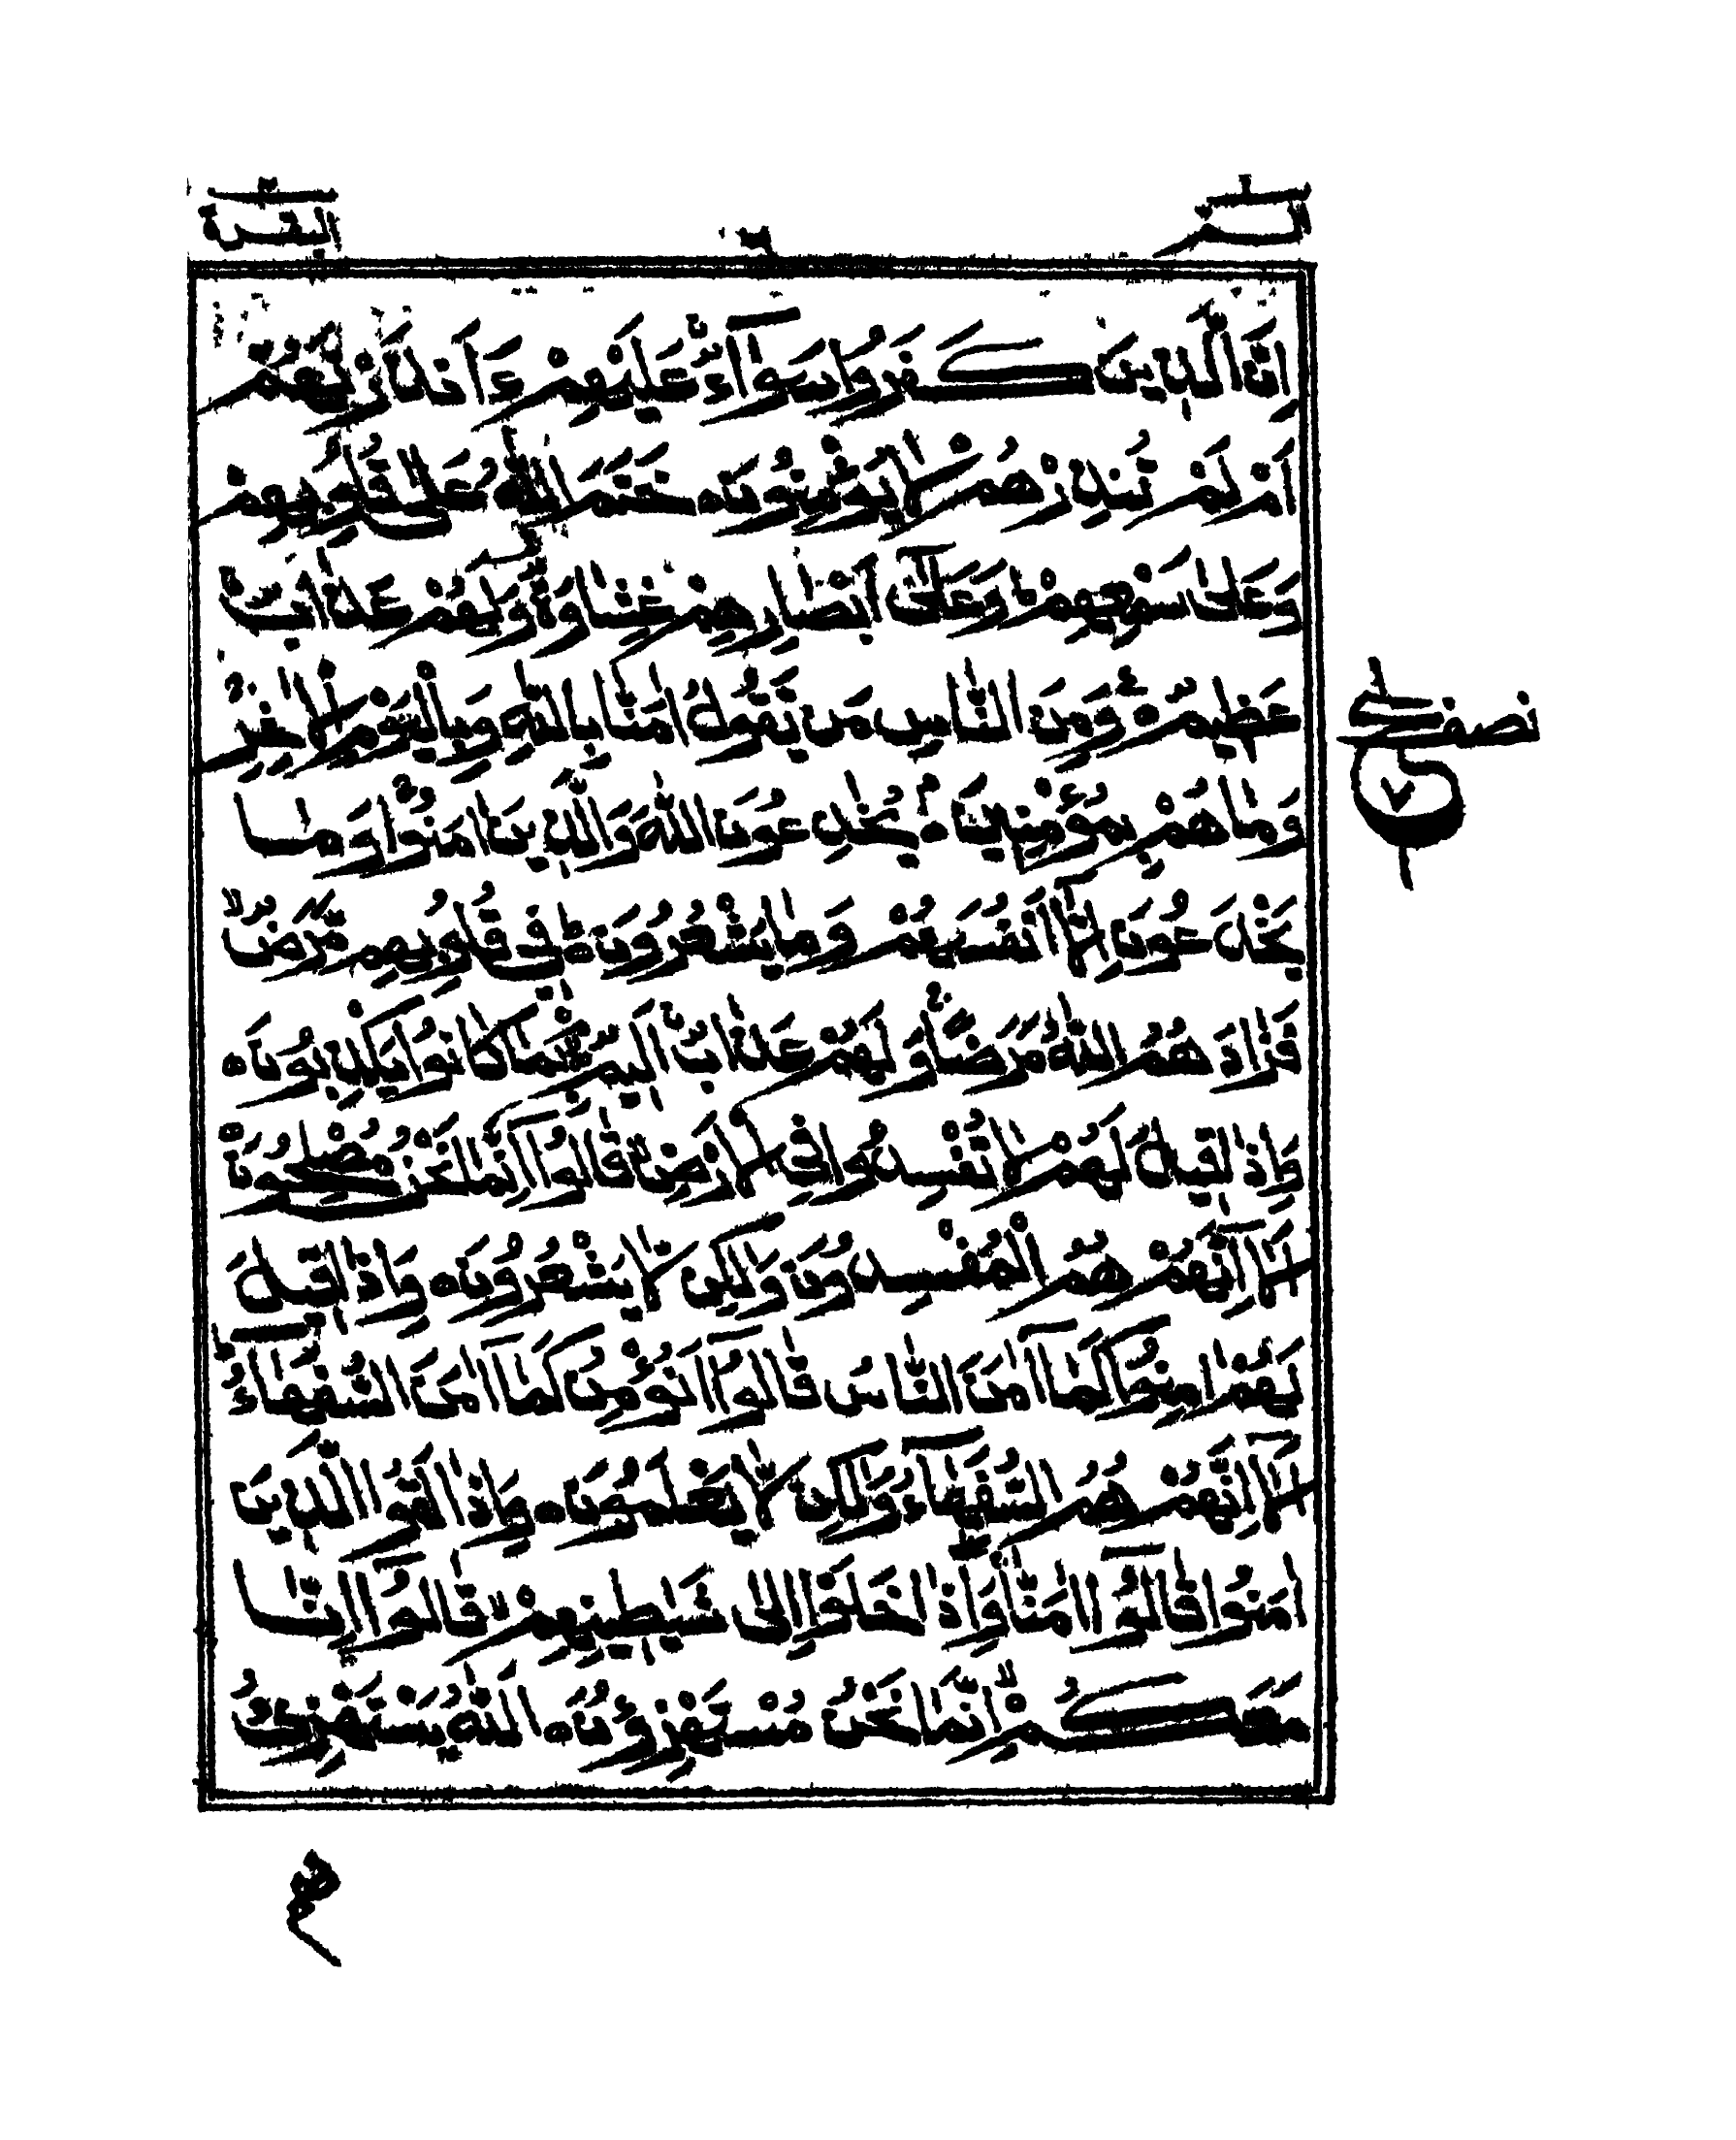 الٓمٓ البقرة
اِنَّ الَّذِيْنَ كَفَرُوْا سَوَآءٌ عَلَيْهِمْ ءَاَنْذَرْتَهُمْ
اَمْ لَمْ تُنْذِرْهُمْ لَا يُؤْمِنُوْنَ خَتَمَ اللّٰهُ عَلٰى قُلُوْبِهِمْ
وَعَلٰى سَمْعِهِمْ ؕ وَعَلٰٓى اَبْصَارِهِمْ غِشَاوَةٌ وَّلَهُمْ عَذَابٌ
عَظِيْمٌ وَمِنَ النَّاسِ مَنْ يَّقُوْلُ اٰمَنَّا بِاللّٰهِ وَبِالْيَوْمِ الْاٰخِرِ
وَمَا هُمْ بِمُؤْمِنِيْنَ يُخٰدِعُوْنَ اللّٰهَ وَالَّذِيْنَ اٰمَنُوْا وَمَا
يَخْدَعُوْنَ اِلَّآ اَنْفُسَهُمْ وَمَا يَشْعُرُوْنَ ؕ فِيْ قُلُوْبِهِمْ مَّرَضٌ ۙ
فَزَادَهُمُ اللّٰهُ مَرَضًا وَلَهُمْ عَذَابٌ اَلِيْمٌ بِمَا كَانُوْا يَكْذِبُوْنَ
وَاِذَا قِيْلَ لَهُمْ لَا تُفْسِدُوْا فِي الْاَرْضِ قَالُوْٓا اِنَّمَا نَحْنُ مُصْلِحُوْنَ
اَلَآ اِنَّهُمْ هُمُ الْمُفْسِدُوْنَ وَلٰكِنْ لَّا يَشْعُرُوْنَ وَاِذَا قِيْلَ
لَهُمْ اٰمِنُوْا كَمَآ اٰمَنَ النَّاسُ قَالُوْٓا اَنُؤْمِنُ كَمَآ اٰمَنَ السُّفَهَآءُ ؕ
اَلَآ اِنَّهُمْ هُمُ السُّفَهَآءُ وَلٰكِنْ لَّا يَعْلَمُوْنَ وَاِذَا لَقُوا الَّذِيْنَ
اٰمَنُوْا قَالُوْٓا اٰمَنَّا وَاِذَا خَلَوْا اِلٰى شَيٰطِيْنِهِمْ ۙ قَالُوْٓا اِنَّا
مَعَكُمْ ۙ اِنَّمَا نَحْنُ مُسْتَهْزِءُوْنَ اَللّٰهُ يَسْتَهْزِئُ